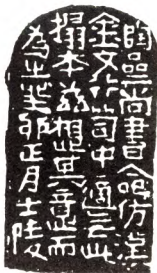 匋齋尚書命仿漢
金文行笥中適无此
搨本茲想其意而
為之癸卯正月士陵